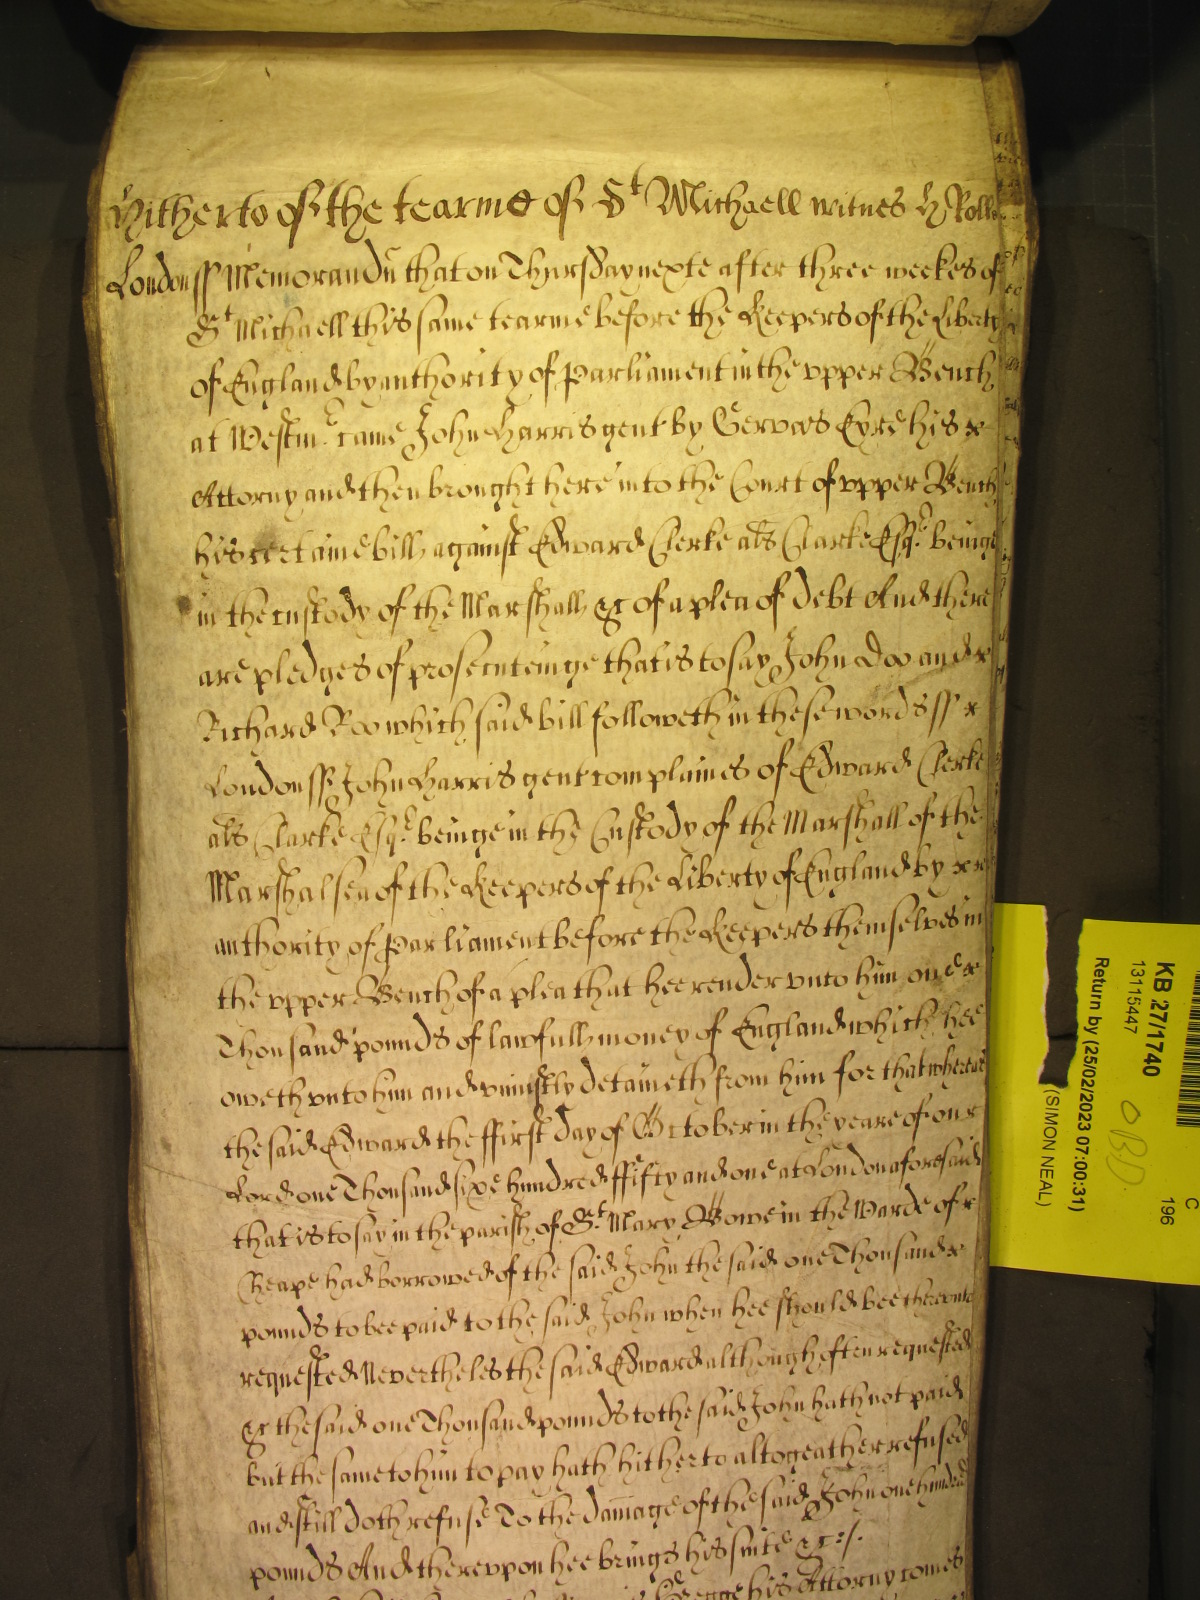 Hitherto of the tearme of St Michaell witnes H Rolle
London ss Memorandū that on Thursday nexte after three weekes of
St Michaell this same tearme before the Keepers of the Liberty
of England by authority of Parliament in the vpper Bench
at Westmr came John Harris gent by Gervas Eyre his x
Attorny and then brought here into the Court of vpper Bench
his certaine bill against Edward Clerke als Clarke Esqr beinge
in the custody of the Marshall &c of a plea of debt And there
are pledges of prosecuteinge that is to say John Doo and x
Richard Roo which said bill followeth in these words ss x
London ss John Harris gent complaines of Edward Clerke
als Clarke Esqr beinge in the Custody of the Marshall of the
Marshalsea of the Keepers of the Liberty of England by x x
authority of Parliament before the Keepers themselves in
the vpper Bench of a plea that hee render vnto him one x
Thousand pounds of lawfull money of England which hee
oweth vnto him and vniustly detaineth from him for that whereas
the said Edward the ffirst day of October in the yeare of our
Lord one Thousand sixe hundred ffifty and one at London aforesaid
that is to say in the parish of St Mary Bowe in the Warde of x
Cheape had borrowed of the said John the said one Thousand x
pounds to bee paid to the said John when hee should bee therevnto
requested Nevertheles the said Edward although often requested
&c the said one Thousand pounds to the said John hath not paid
but the same to him to pay hath hitherto altogeather refused
and still doth refuse To the damage of the said John one hundred
pounds And therevpon hee brings his suite &c ./.
his Attorny comes
KB 27/1740
13115447
Return by (25/02/2023 07:00:31)
(SIMON NEAL)
C
196
OBD